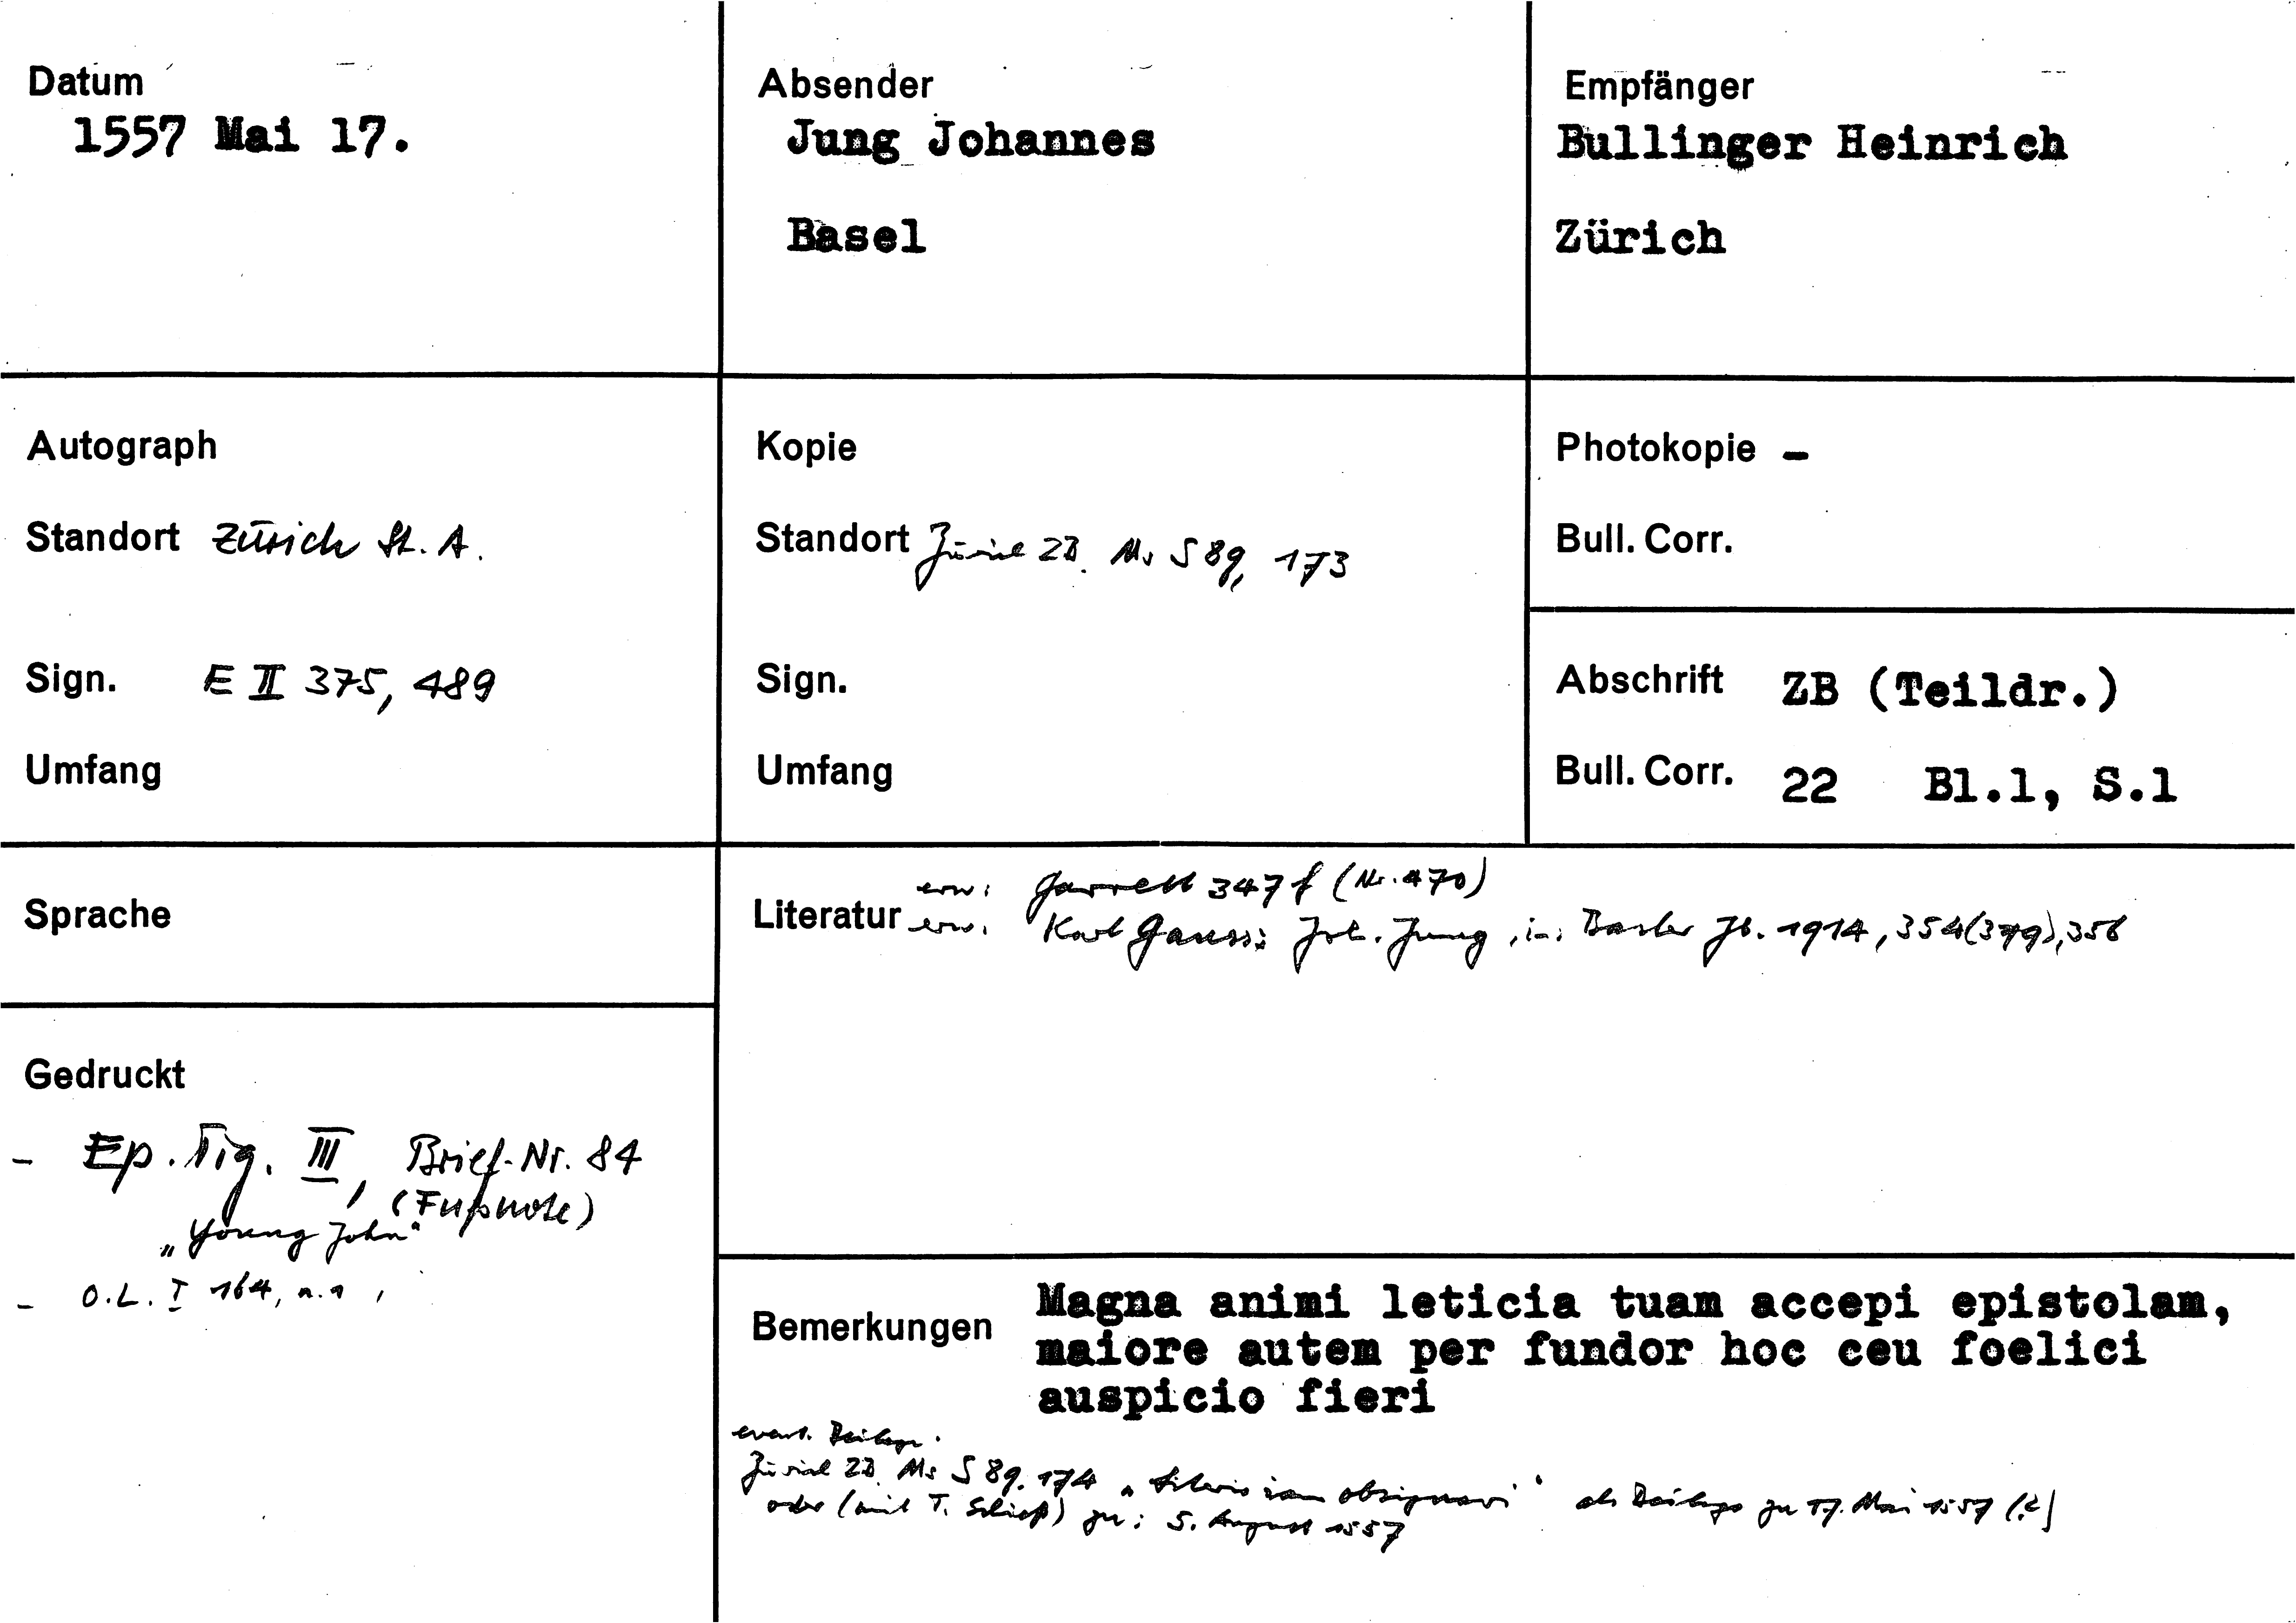 Datum
1557 Mai 17.
Absender
Jung Johannes
Basel
Empfänger
Bullinger Heinrich
Zürich
Autograph
Standort Zürich St. A.
Sign. E II 375, 489
Umfang
Kopie
Standort Zürich ZB. Ms S 89, 173
Sign.
Umfang
Photokopie -
Bull. Corr.
Abschrift ZB (Teildr.)
Bull. Corr. 22 Bl.1, S.1
Sprache
Literatur erw: Garrett 347 f (Nr. 470)
erw. Karl Gauss: Joh. Jung, in: Basler Jb. 1914, 354(379), 356
Gedruckt
- Ep. Tig. III, Brief-Nr. 84
(Fußnote)
"Young John"
- O.L. I 164, n. 1
Bemerkungen
Magna animi leticia tuam accepi epistolam,
maiore autem per fundor hoc ceu foelici
auspicio fieri
event. Beilage.
Zürich ZB. Ms S 89. 174 "literis iam obsignavi" als Beilage zu 17. Mai 1557 (?)
oder (mit T. Schieß) zu: 5. August 1557